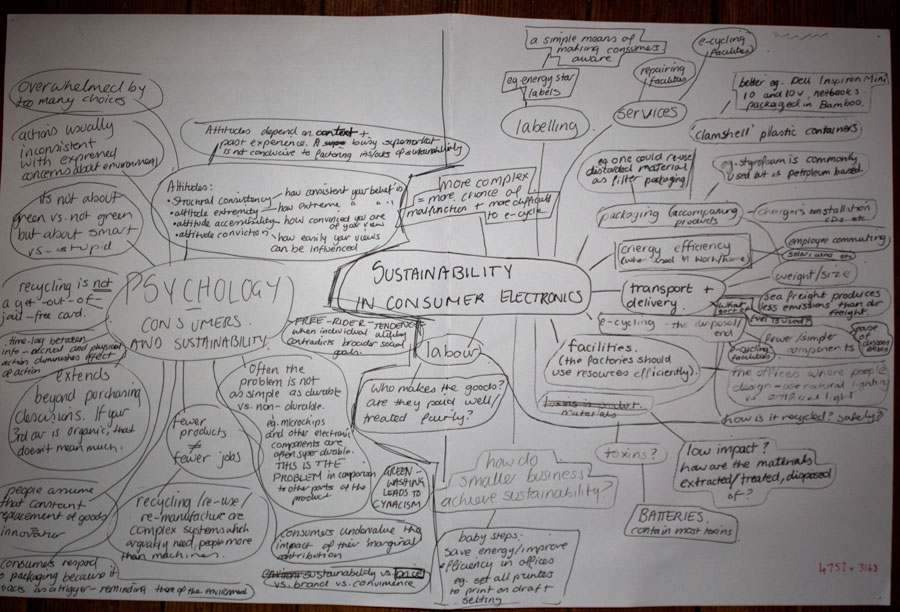 OVERWHELMED BY
too many choices
actions usually
inconsistent
with expressed
concerns about environment
its not about
green vs. not green
but about smart
vs. stupid
recycling is not
a get-out-of-
jail-free card.
time-lag between
and physical
action diminishes effect
of action
extends
beyond purchasing
descisions. If your
3rd car is organic, that
doesn't mean much.
people assume
that constant
replacement of goods
innovation
consumers respond
to packaging because it
acts as a trigger - reminding them of the environment
Attitudes depend on context +
past experience. A busy supermarket
is not conducive to factoring ins/outs of sustainability
Attitudes:
• Structural consistancy
how consistent your belief is
• attitude extremity
how extreme is
• attitude accessability
how convinced you are
of your view
• attitude conviction
how easily your views
can be influenced
PSYCHOLOGY
CONSUMERS.
AND SUSTAINABILITY.
FREE-RIDER-TENDENCY
when individual utility
contradicts broader social
goals.
Often the
problem is not
as simple as durable
vs. non-durable.
eg. microchips
and other electronic
components are
often super durable.
THIS IS THE
PROBLEM in comparison
to other parts of the
product
fewer
products
≠
fewer jobs
recycling/re-use/
re-manufacture are
complex systems which
arguably need people more
than machines.
GREEN-
WASHING
LEADS TO
CYNACISM
consumers undervalue the
impact of their marginal
contribution
sustainability vs. price
vs. brand vs. convinience
a simple means of
making consumers
aware
eg energy star
labels
labelling
e-cycling
facilities
repairing
facilities
services
better eg. Dell Inspiron Mini
10 and 10v, netbooks
packaged in Bamboo.
'clamshell' plastic containers
eg. styrofoam is commonly
used but is petroleum based.
eg one could re-use
discarded material
as filter packaging
packaging (accompanying
products
chargers installation
CDs etc.
more complex
= more chance of
malfunction + more difficult
to e-cycle
SUSTAINABILITY
IN CONSUMER ELECTRONICS
energy efficiency
(when used at work/home)
transport +
delivery.
employee commuting
weight/size
what sort of
fuel is used?
sea freight produces
less emissions than air
freight.
e-cycling - the disposal/
end
fewer/simpler
components
e-cycling
facilities
facilities.
(the factories should
use resources efficiently).
the offices where people
design - use natural lighting
vs artificial light
how is it recycled? safely?
labour
who makes the goods?
are they paid well/
treated fairly?
materials
toxins?
BATTERIES
contain most toxins
low impact?
how are the materials
extracted/treated, disposed
of?
how do
smaller business
achieve sustainability?
baby steps:
save energy/improve
efficiency in offices
eg. set all printers
to print on draft
setting
4752 × 3168